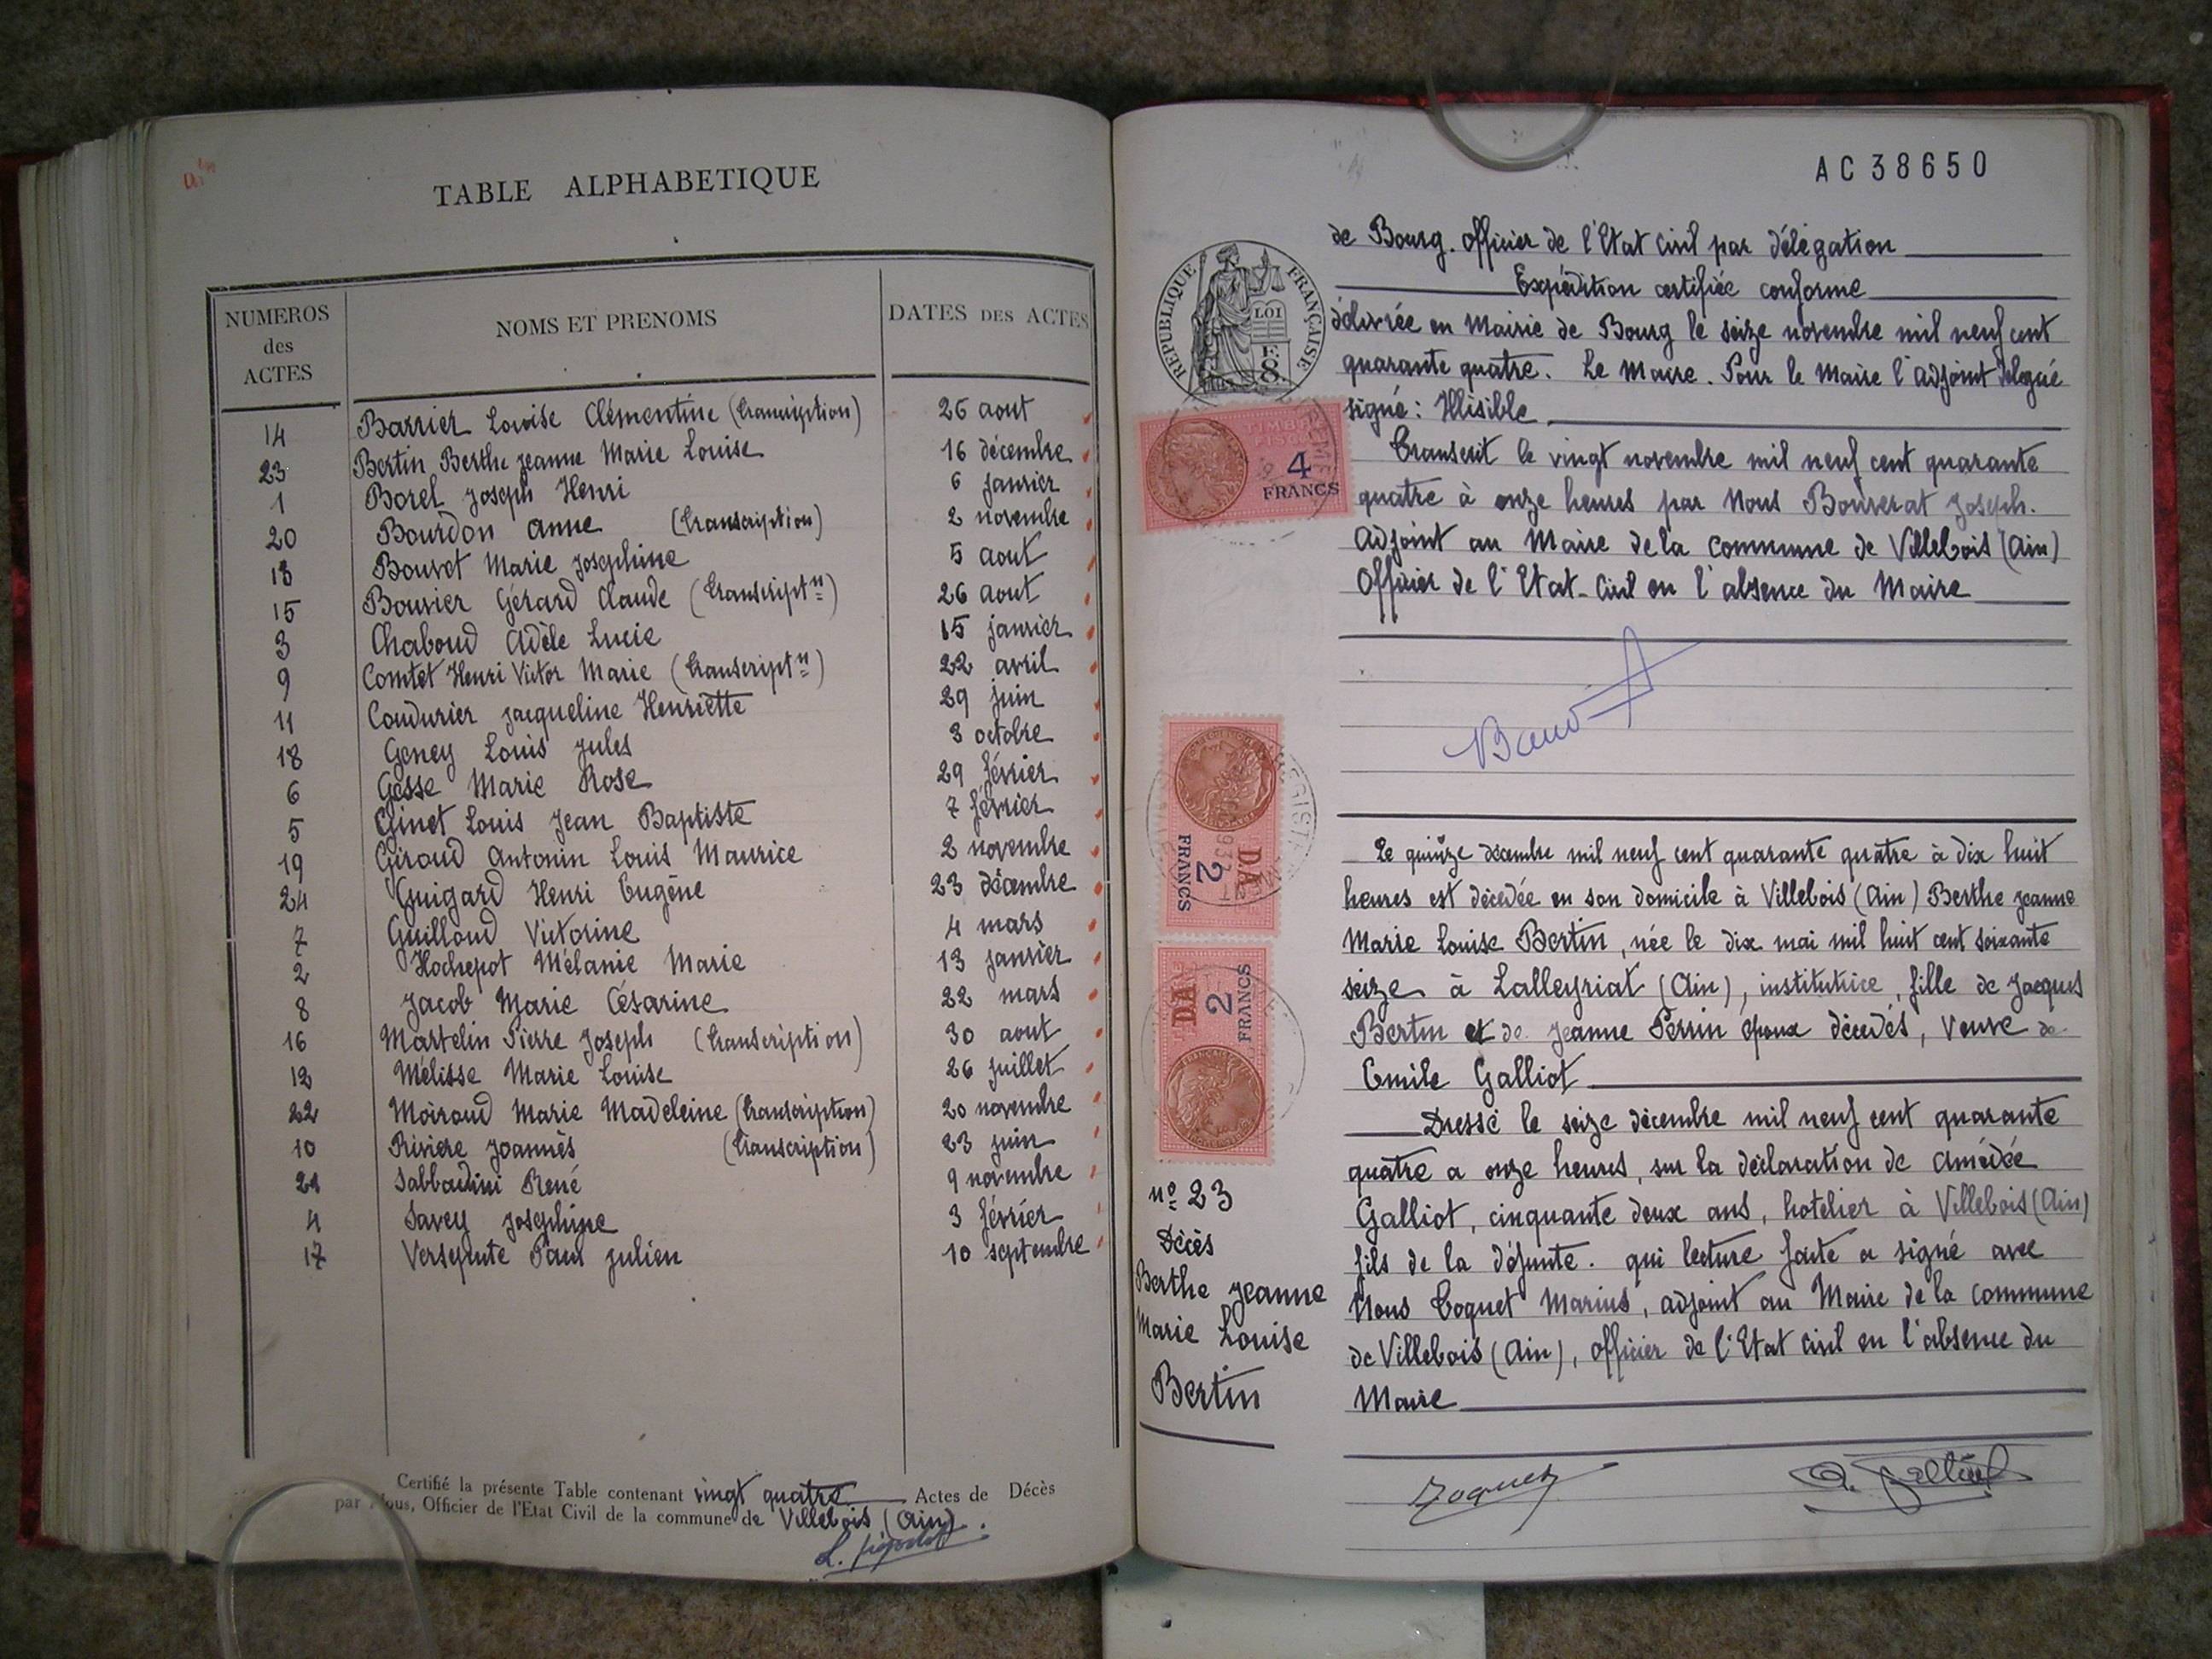 TABLE ALPHABETIQUE
NUMEROS des ACTES NOMS ET PRENOMS DATES DES ACTES
14 Barrier Louise Clémentine (transcription) 26 aout
23 Bertin Berthe Jeanne Marie Louise 16 décembre
1 Borel Joseph Henri 6 janvier
20 Bourdon Anne (transcription) 2 novembre
13 Bouvet Marie Josephine 5 aout
15 Bouvier Gérard Claude (transcriptn) 26 aout
3 Chaboud Adèle Lucie 15 janvier
9 Comtet Henri Victor Marie (transcriptn) 22 avril
11 Coudurier Jacqueline Henriette 29 juin
18 Geney Louis Jules 3 octobre
6 Gesse Marie Rose 29 février
5 Ginet Louis Jean Baptiste 7 février
19 Giroud Antonin Louis Maurice 2 novembre
24 Guigard Henri Eugène 23 décembre
7 Guilloud Victorine 4 mars
2 Hochepot Mélanie Marie 13 janvier
8 Jacob Marie Césarine 22 mars
16 Martelin Pierre Joseph (transcription) 30 aout
12 Mélisse Marie Louise 26 juillet
22 Moiroud Marie Madeleine (transcription) 20 novembre
10 Riviere Joannès (transcription) 23 juin
21 Sabbadini René 9 novembre
4 Savey Josephine 3 février
17 Paul Julien 10 septembre
Certifié la présente Table contenant vingt quatre Actes de Décès
par Nous, Officier de l'Etat Civil de la commune de Villebois (Ain).
AC 38650
de Bourg. Officier de l'Etat Civil par délégation
Expédition certifiée conforme
délivrée en Mairie de Bourg le seize novembre mil neuf cent
quarante quatre. Le Maire. Pour le Maire l'Adjoint Délégué
signé : Illisible
REPUBLIQUE FRANÇAISE
LOI
F.
8
TIMBRE
FISCAL
4
FRANCS
Transcrit le vingt novembre mil neuf cent quarante
quatre à onze heures par Nous Bouverat Joseph.
Adjoint au Maire de la commune de Villebois (Ain)
Officier de l'Etat-Civil en l'absence du Maire
DA
2
FRANCS
DA
2
FRANCS
n° 23
Décès
Berthe Jeanne
Marie Louise
Bertin
Le quinze décembre mil neuf cent quarante quatre à dix huit
heures est décédée en son domicile à Villebois (Ain) Berthe Jeanne
Marie Louise Bertin, née le dix mai mil huit cent soixante
seize à Lalleyriat (Ain), institutrice, fille de Jacques
Bertin et de Jeanne Perrin époux décédés, veuve de
Emile Galliot
Dressé le seize décembre mil neuf cent quarante
quatre a onze heures, sur la déclaration de Amédée
Galliot, cinquante deux ans, hotelier à Villebois (Ain)
fils de la défunte. qui lecture faite a signé avec
Nous Toquet Marius, adjoint au Maire de la commune
de Villebois (Ain), officier de l'Etat Civil en l'absence du
Maire